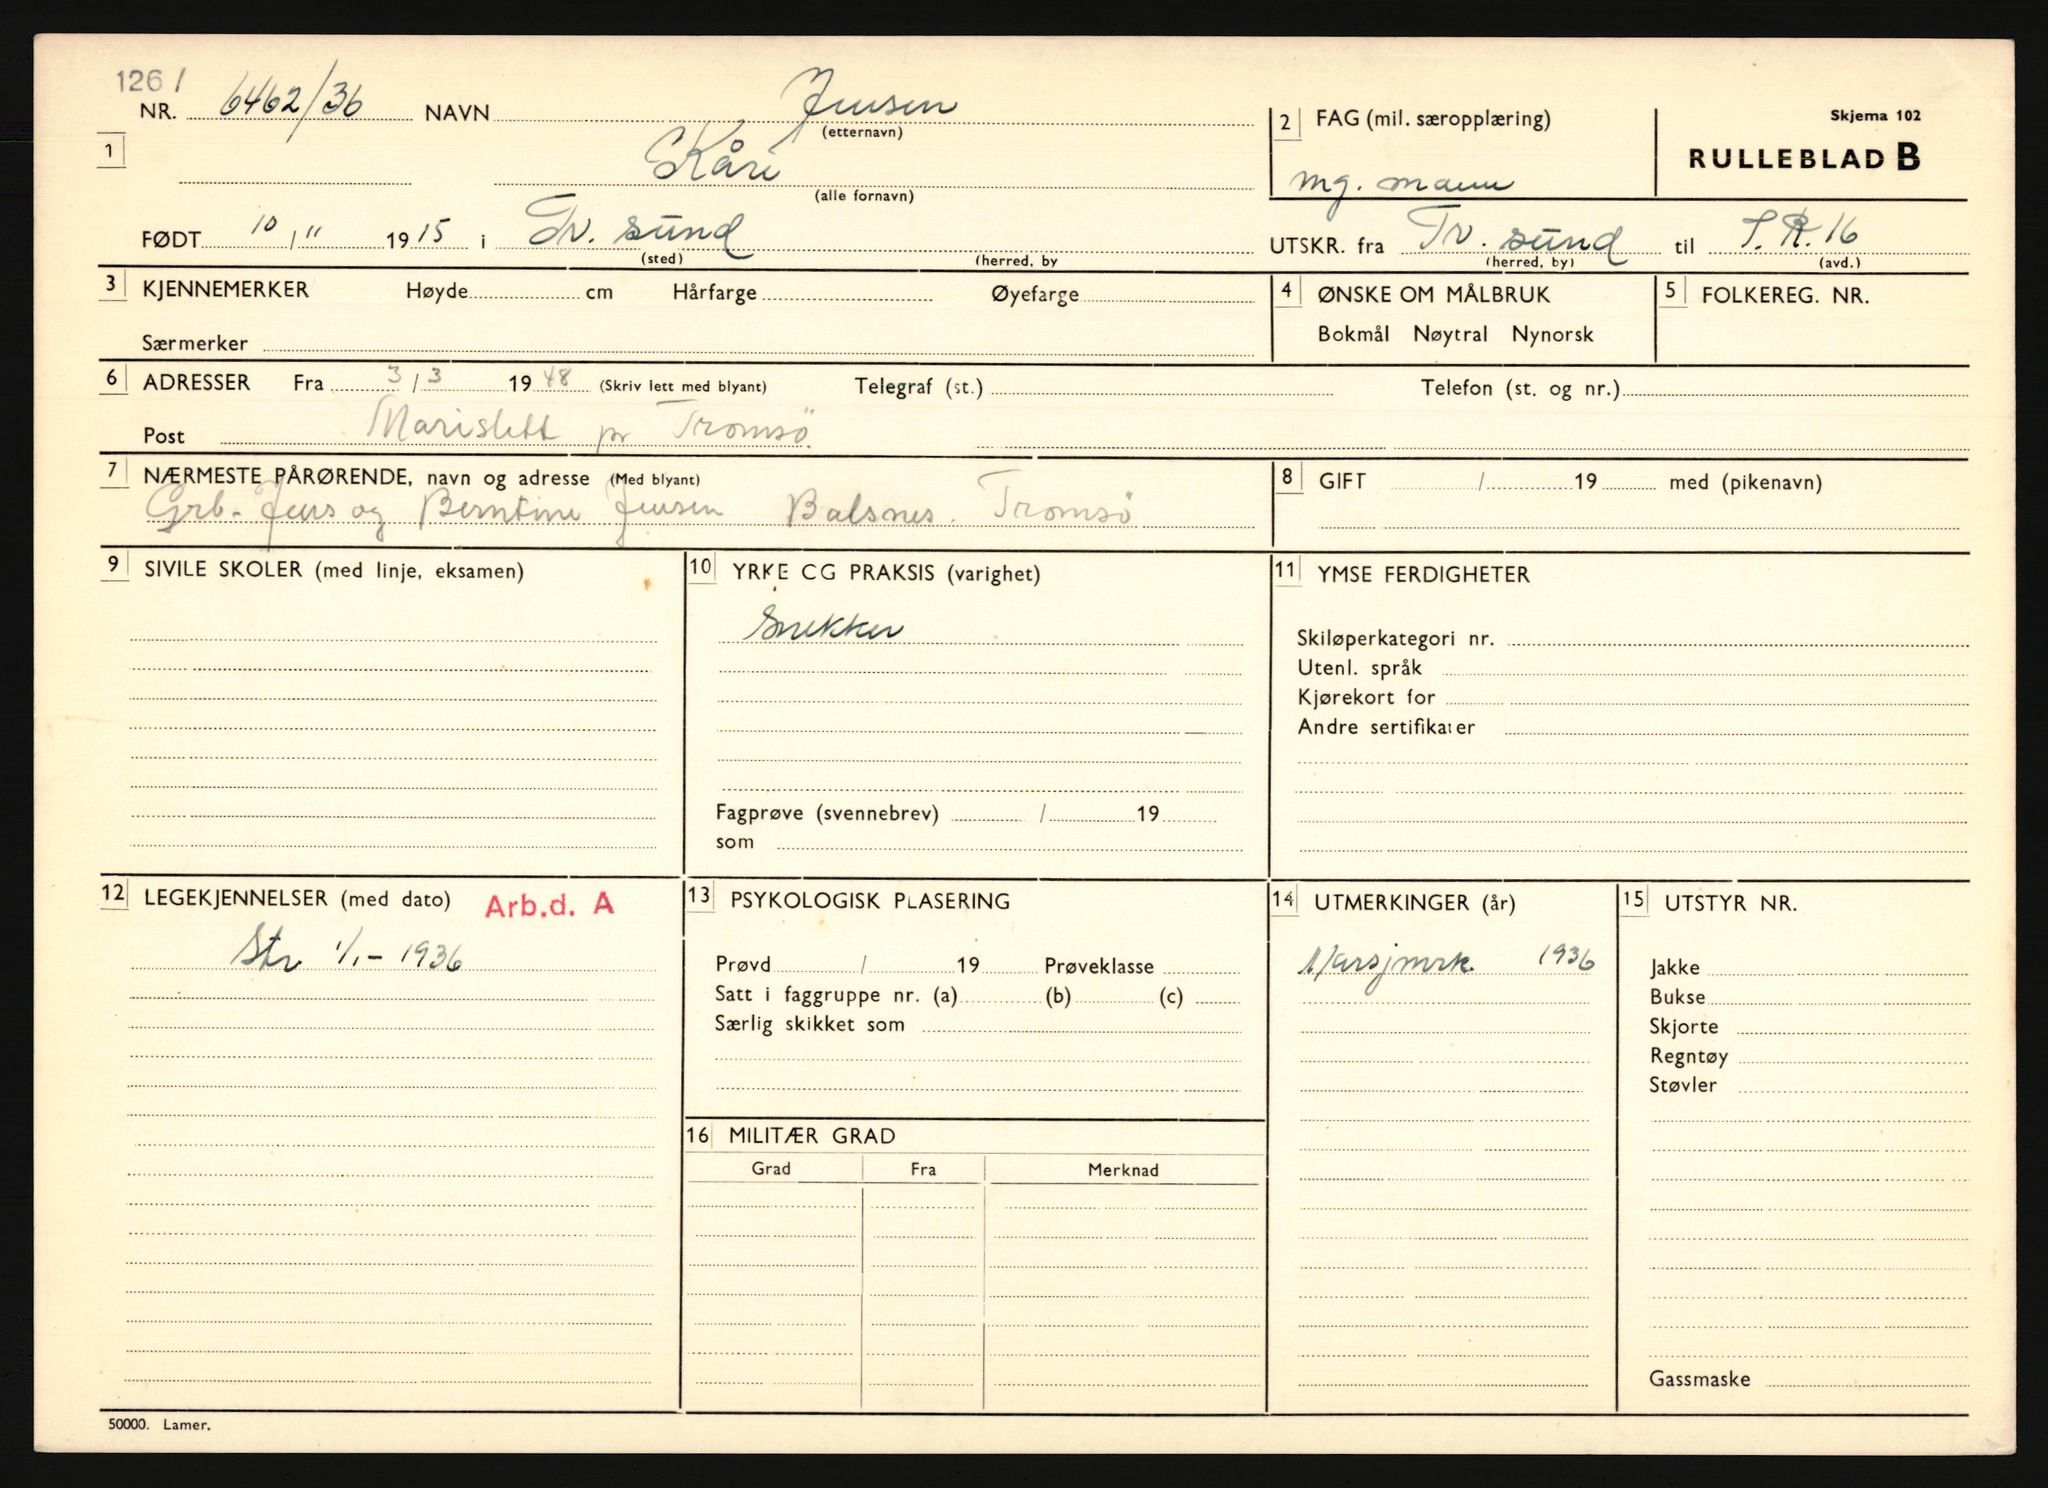 1261
NR. 6462/36 NAVN Jensen
(etternavn)
1
Kåre
(alle fornavn)
2 FAG (mil. særopplæring)
mg. mann
Skjema 102
RULLEBLAD B
FØDT 10 / 11 1915 i Tr. sund
(sted) (herred, by
UTSKR. fra Tr. sund til I.R. 16
(herred, by) (avd.)
3 KJENNEMERKER Høyde cm Hårfarge Øyefarge
Særmerker
4 ØNSKE OM MÅLBRUK
Bokmål Nøytral Nynorsk
5 FOLKEREG. NR.
6 ADRESSER Fra 3 / 3 1948 (Skriv lett med blyant) Telegraf (st.) Telefon (st. og nr.)
Post Marislett pr Tromsö.
7 NÆRMESTE PÅRØRENDE, navn og adresse (Med blyant)
Grb. Jens og Berntine Jensen Balsnes. Tromsö
8 GIFT / 19 med (pikenavn)
9 SIVILE SKOLER (med linje, eksamen)
10 YRKE CG PRAKSIS (varighet)
Snekker
Fagprøve (svennebrev) / 19
som
11 YMSE FERDIGHETER
Skiløperkategori nr.
Utenl. språk
Kjørekort for
Andre sertifikater
12 LEGEKJENNELSER (med dato) Arb.d. A
Str 1/1 - 1936
13 PSYKOLOGISK PLASERING
Prøvd / 19 Prøveklasse
Satt i faggruppe nr. (a) (b) (c)
Særlig skikket som
14 UTMERKINGER (år)
Marsjmrk. 1936
15 UTSTYR NR.
Jakke
Bukse
Skjorte
Regntøy
Støvler
Gassmaske
16 MILITÆR GRAD
Grad Fra Merknad
50000. Lamer.